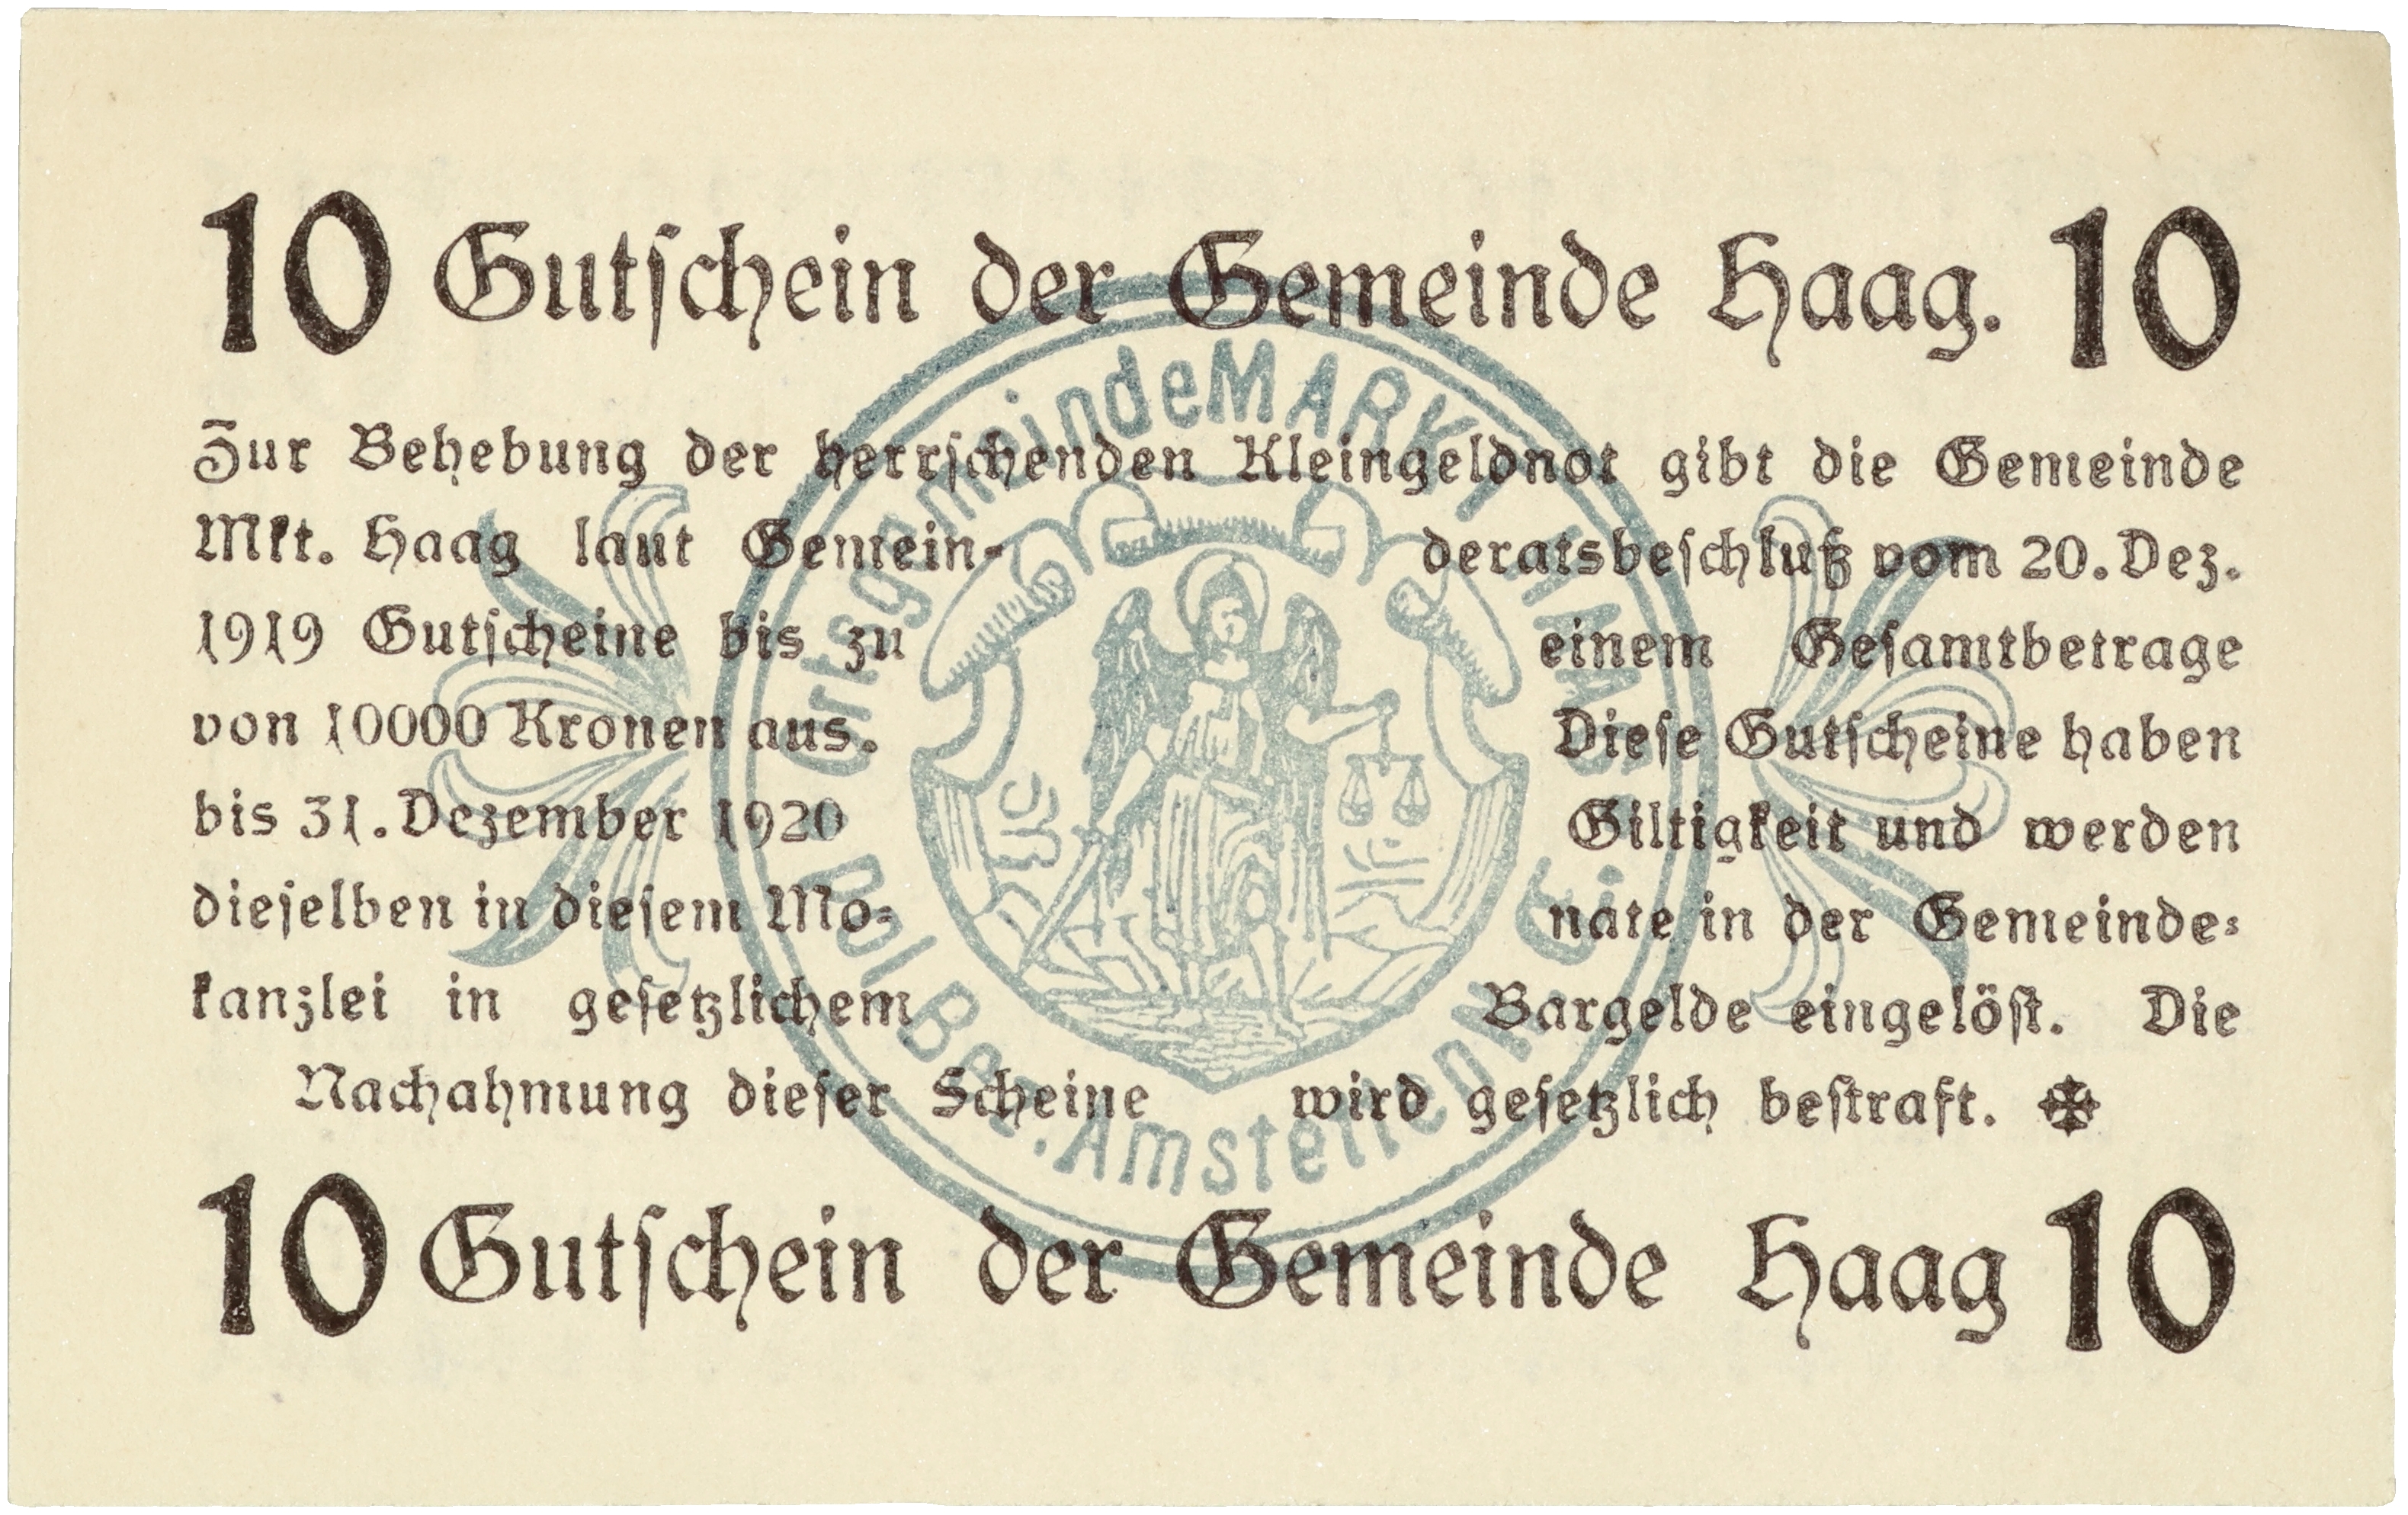 10 Gutschein der Gemeinde Haag. 10
Zur Behebung der herrschenden Kleingeldnot gibt die Gemeinde
Mkt. Haag laut Gemein- deratsbeschluß vom 20. Dez.
1919 Gutscheine bis zu einem Gesamtbetrage
von 10000 Kronen aus. Diese Gutscheine haben
bis 31. Dezember 1920 Giltigkeit und werden
dieselben in diesem Mo- nate in der Gemeinde-
kanzlei in gesetzlichem Bargelde eingelöst. Die
Nachahmung dieser Scheine wird gesetzlich bestraft.
10 Gutschein der Gemeinde Haag 10
OrtsgemeindeMARKT HAAG
Pol Bez. Amstetten N.Ö.